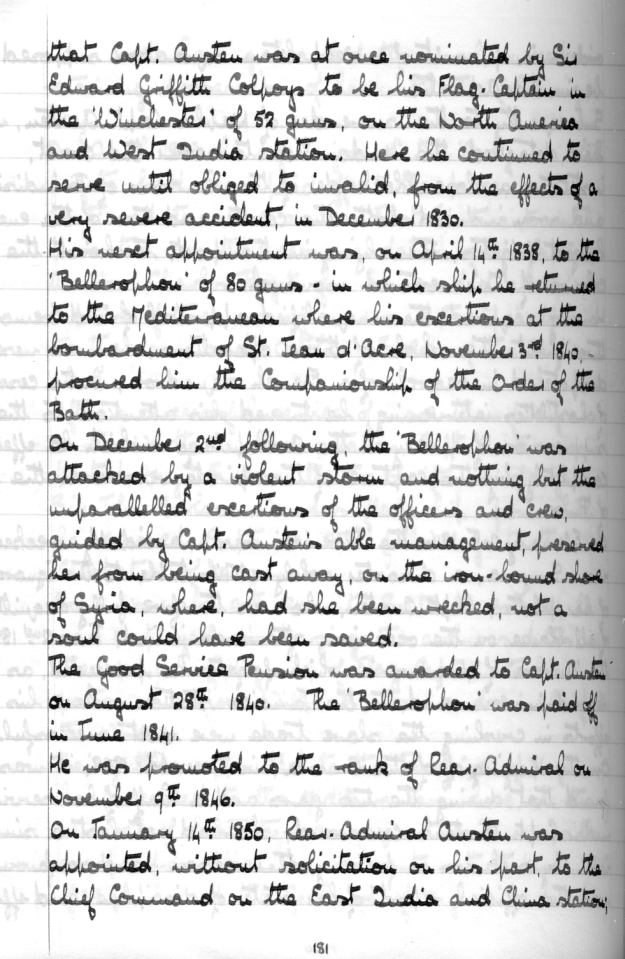 that Capt. Austen was at once nominated by Sir
Edward Griffith Colpoys to be his Flag-Captain in
the 'Winchester' of 52 guns, on the North America
and West India station. Here he continued to
serve until obliged to invalid, from the effects of a
very severe accident, in December 1830.
His next appointment was, on April 14th 1838, to the
'Bellerophon' of 80 guns - in which ship he returned
to the Mediterranean where his exertions at the
bombardment of St. Jean d'Acre, November 3rd 1840, -
procured him the Companionship of the Order of the
Bath.
On December 2nd following, the 'Bellerophon' was
attacked by a violent storm and nothing but the
unparallelled exertions of the officers and crew,
guided by Capt. Austen's able management, preserved
her from being cast away, on the iron-bound shore
of Syria, where, had she been wrecked, not a
soul could have been saved.
The Good Service Pension was awarded to Capt. Austen
on August 28th 1840. The 'Bellerophon' was paid off
in June 1841.
He was promoted to the rank of Rear-Admiral on
November 9th 1846.
On January 14th 1850, Rear-Admiral Austen was
appointed, without solicitation on his part, to the
Chief Command on the East India and China station;
181